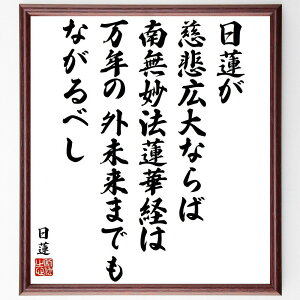 日蓮が
慈悲広大ならば
南無妙法蓮華経は
万年の外未来までも
ながるべし
日蓮